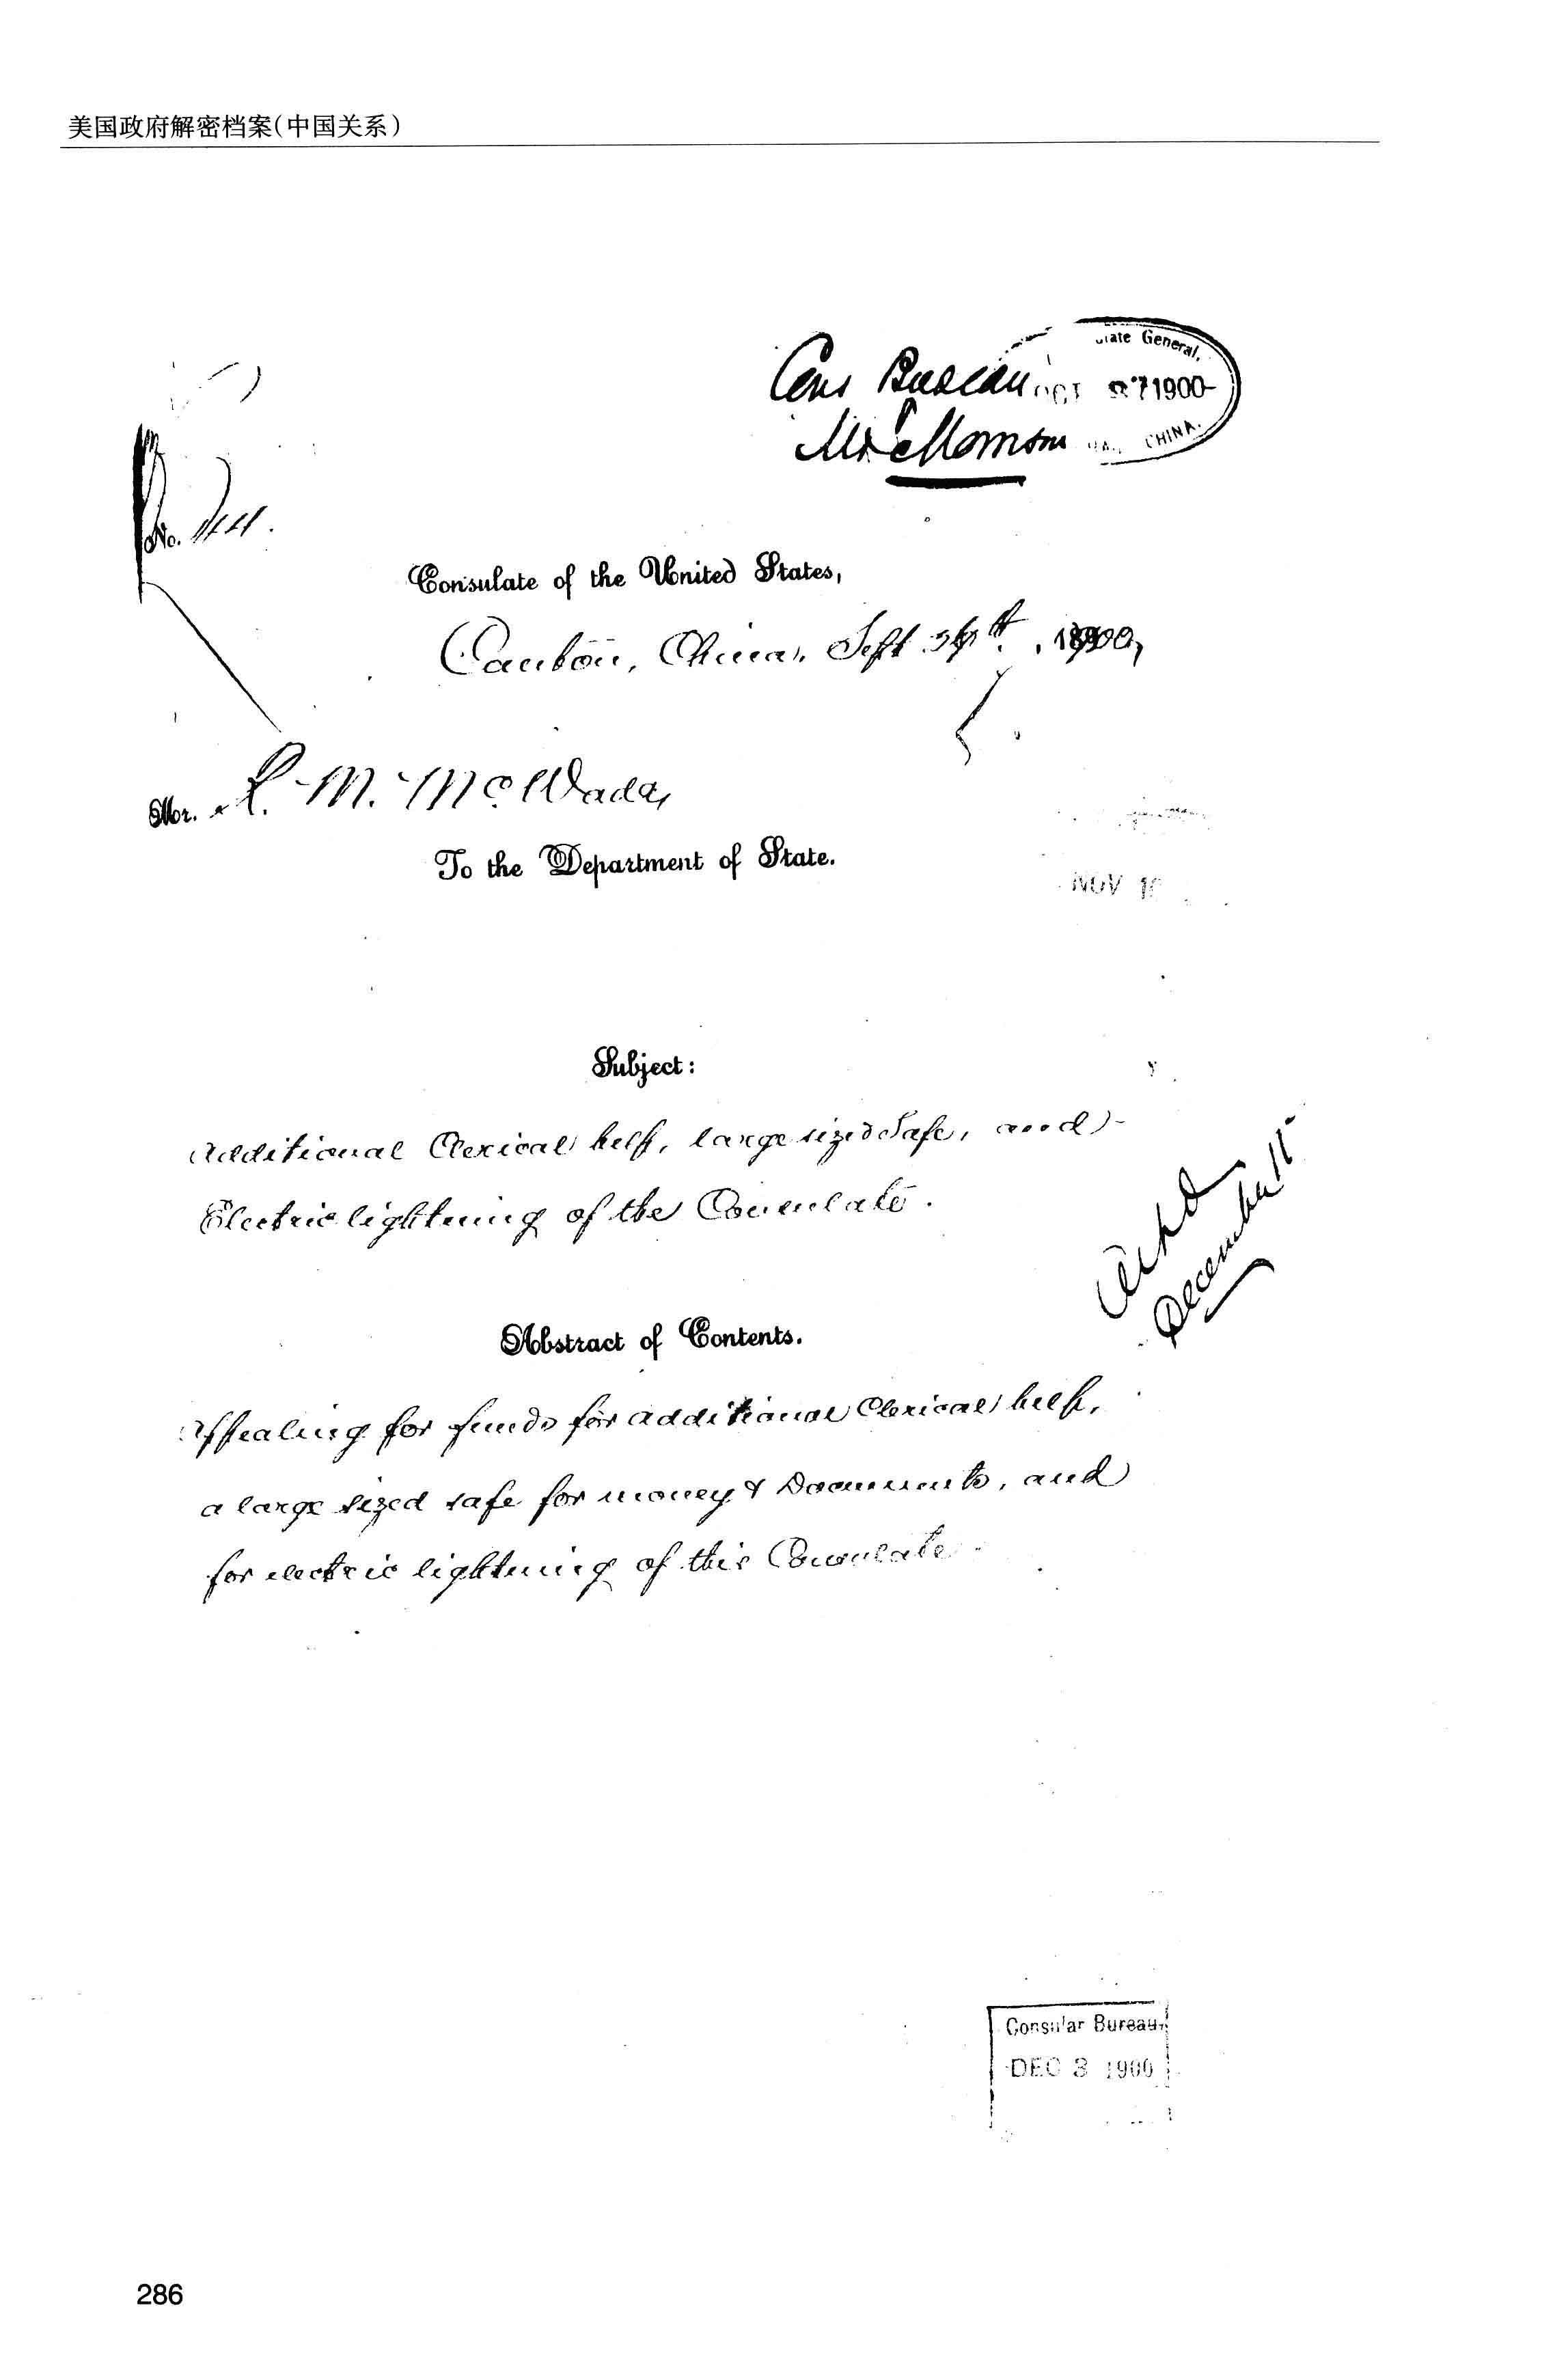 美国政府解密档案(中国关系)
General,
Cons Bureau
OCT 1900
Mr.
CHINA.
No.
Consulate of the United States,
Canton, China, Sept 1900,
Mr. R. M. McWade,
To the Department of State.
NOV
Subject:
Additional Clerical help, large sized Safe, and
Electric lightning of the Consulate.
Ackd
December 11
Abstract of Contents.
Appealing for funds for additional Clerical help,
a large sized safe for money & Documents, and
for electric lightning of this Consulate.
Consular Bureau,
DEC 3 1900
286